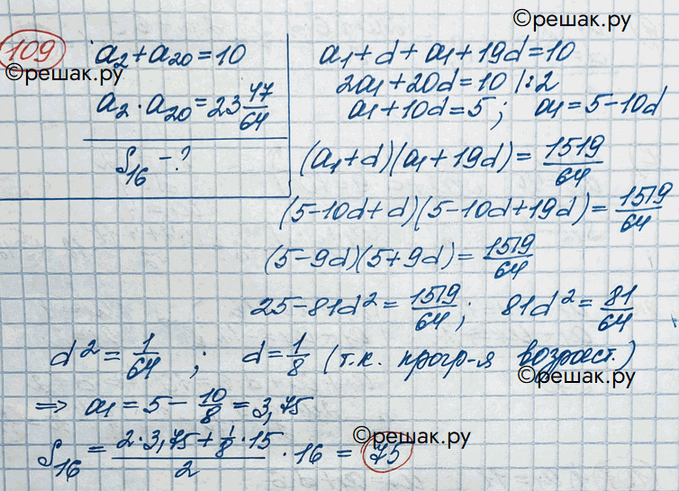 ©решак.ру
109 a₂ + a₂₀ = 10
©решак.ру
a₂ · a₂₀ = 23 47/64
S₁₆ - ?
a₁ + d + a₁ + 19d = 10
2a₁ + 20d = 10 |:2
a₁ + 10d = 5; a₁ = 5 - 10d
(a₁ + d)(a₁ + 19d) = 1519/64
(5 - 10d + d)(5 - 10d + 19d) = 1519/64
(5 - 9d)(5 + 9d) = 1519/64
25 - 81d² = 1519/64; 81d² = 81/64
d² = 1/64; d = 1/8 (т.к. прогр-я возраст.)
©решак.ру
⇒ a₁ = 5 - 10/8 = 3,75
©решак.ру
S₁₆ = (2·3,75 + 1/8·15)/2 · 16 = 75